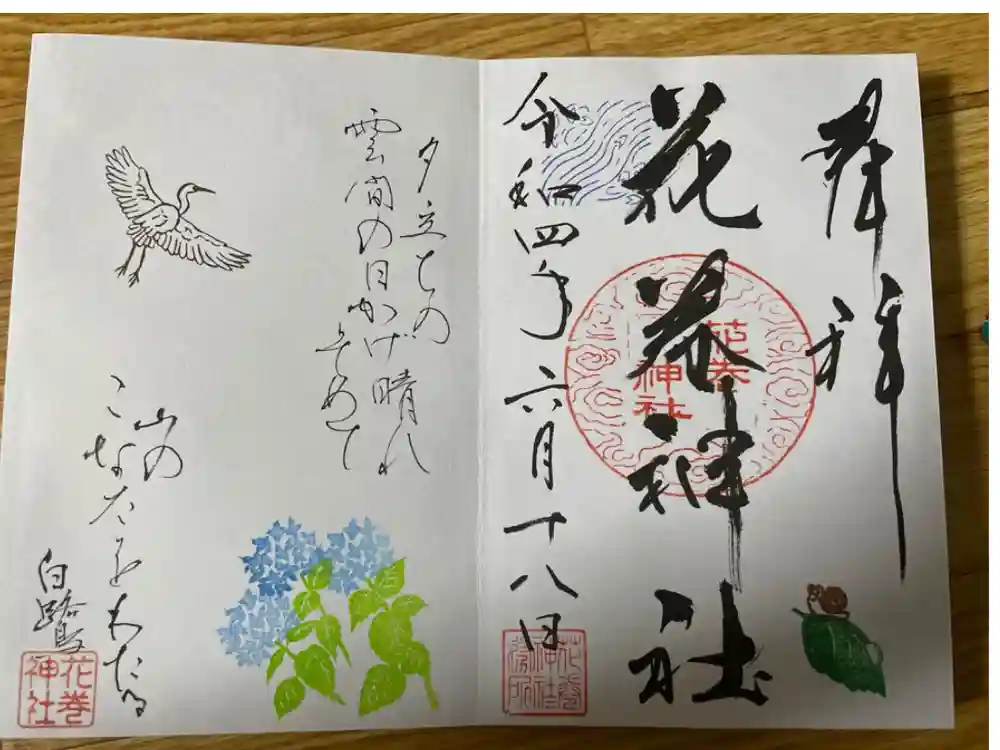 奉拝
花巻神社
令和四年六月十八日
花巻
神社
花巻
神社
務所
夕立ちの
雲間の日かげ晴れ
そめて
山の
こなたをわたる
白鷺
花巻
神社